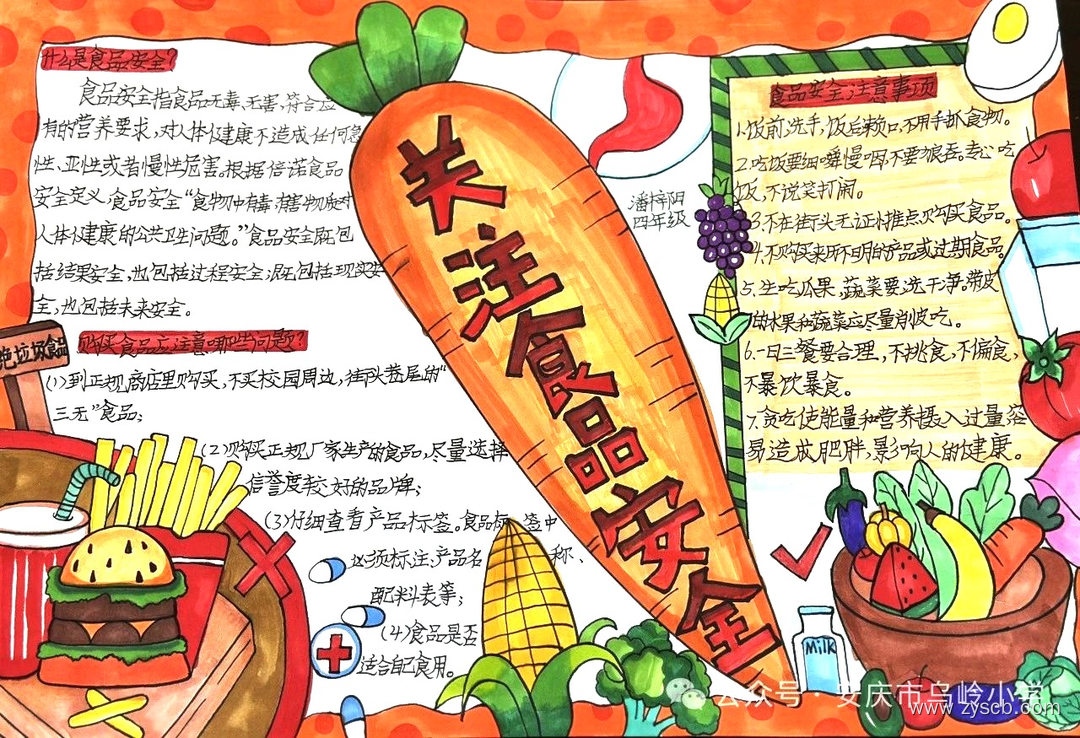 什么是食品安全?
食品安全指食品无毒、无害,符合应
有的营养要求,对人体健康不造成任何急
性、亚性或者慢性危害。根据倍诺食品
安全定义,食品安全“食物中有毒、有害物质对
人体健康的公共卫生问题。”食品安全既包
括结果安全,也包括过程安全;既包括现实安
全,也包括未来安全。
购买食品应注意哪些问题?
绝垃圾食品
(1)到正规商店里购买,不买校园周边、街头巷尾的“
三无”食品;
(2)购买正规厂家生产的食品,尽量选择
信誉度较好的品牌;
(3)仔细查看产品标签。食品标签中
必须标注产品名称、
配料表等;
(4)食品是否
适合自己食用。
关注食品安全
潘梓阳
四年级
食品安全注意事项
1.饭前洗手,饭后漱口,不用手抓食物。
2.吃饭要细嚼慢咽不要狼吞。专心吃
饭,不说笑打闹。
3.不在街头无证小摊点购买食品。
4.不购买来所不明的产品或过期食品。
5.生吃瓜果、蔬菜要洗干净。带皮
的水果和蔬菜应尽量削皮吃。
6.一日三餐要合理,不挑食,不偏食,
不暴饮暴食。
7.贪吃使能量和营养摄入过量容
易造成肥胖,影响人的健康。
Milk
公众号·安庆市乌岭小学
www.zyscb.com